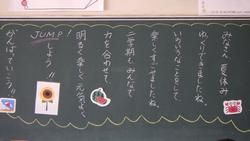 みなさん 夏休み
ゆっくりできましたね。
いろいろなことをして
楽しくすごせましたね。
二学期も みんなで
力を合わせて、
明るく 楽しく 元気よく
JUMP!
しよう!!
がんばっていこう!!